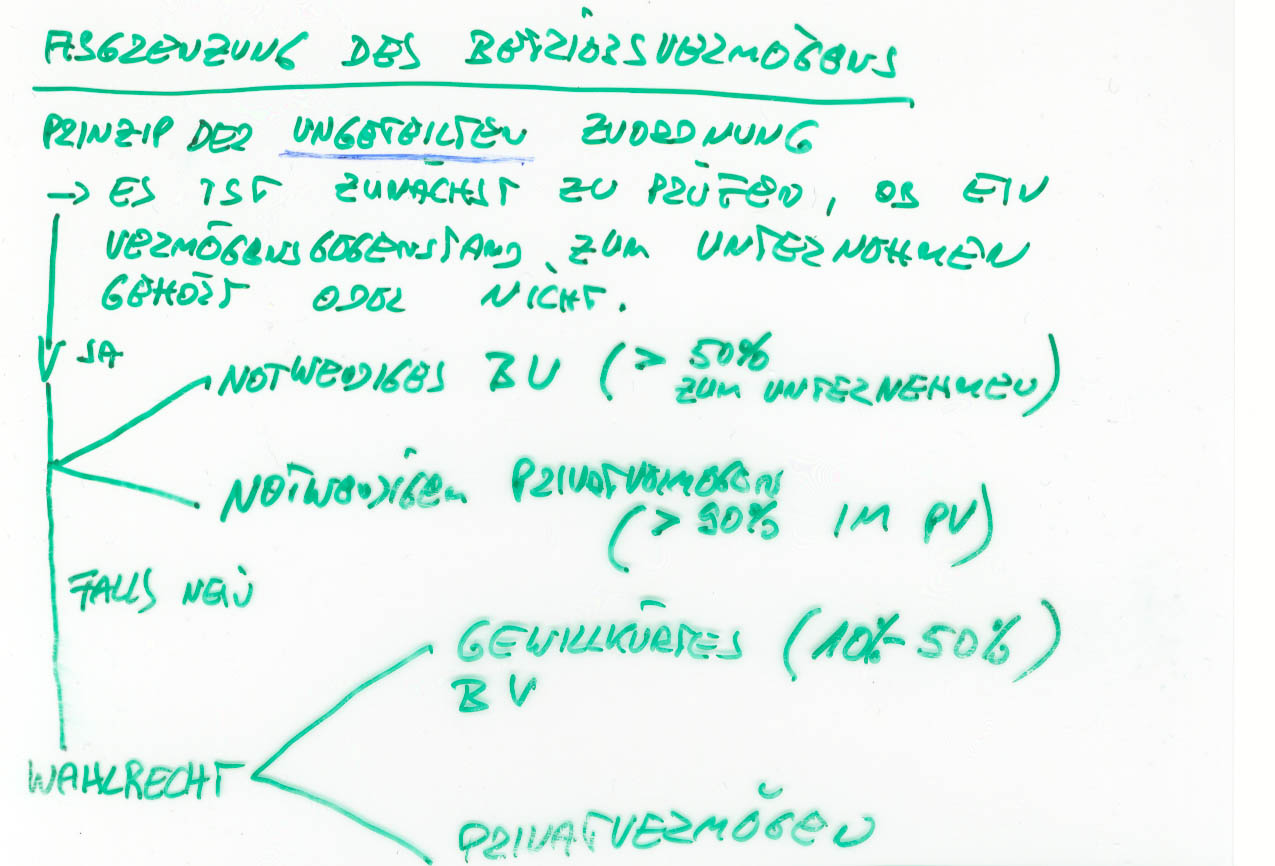 ABGRENZUNG DES BETRIEBSVERMÖGENS
PRINZIP DER UNGETEILTEN ZUORDNUNG
→ ES IST ZUNÄCHST ZU PRÜFEN, OB EIN
VERMÖGENSGEGENSTAND ZUM UNTERNEHMEN
GEHÖRT ODER NICHT.
JA
NOTWENDIGES BV (> 50%
ZUM UNTERNEHMEN)
NOTWENDIGEM PRIVATVERMÖGEN
(> 90% IM PV)
FALLS NEIN
GEWILLKÜRTES (10%-50%)
BV
WAHLRECHT
PRIVATVERMÖGEN